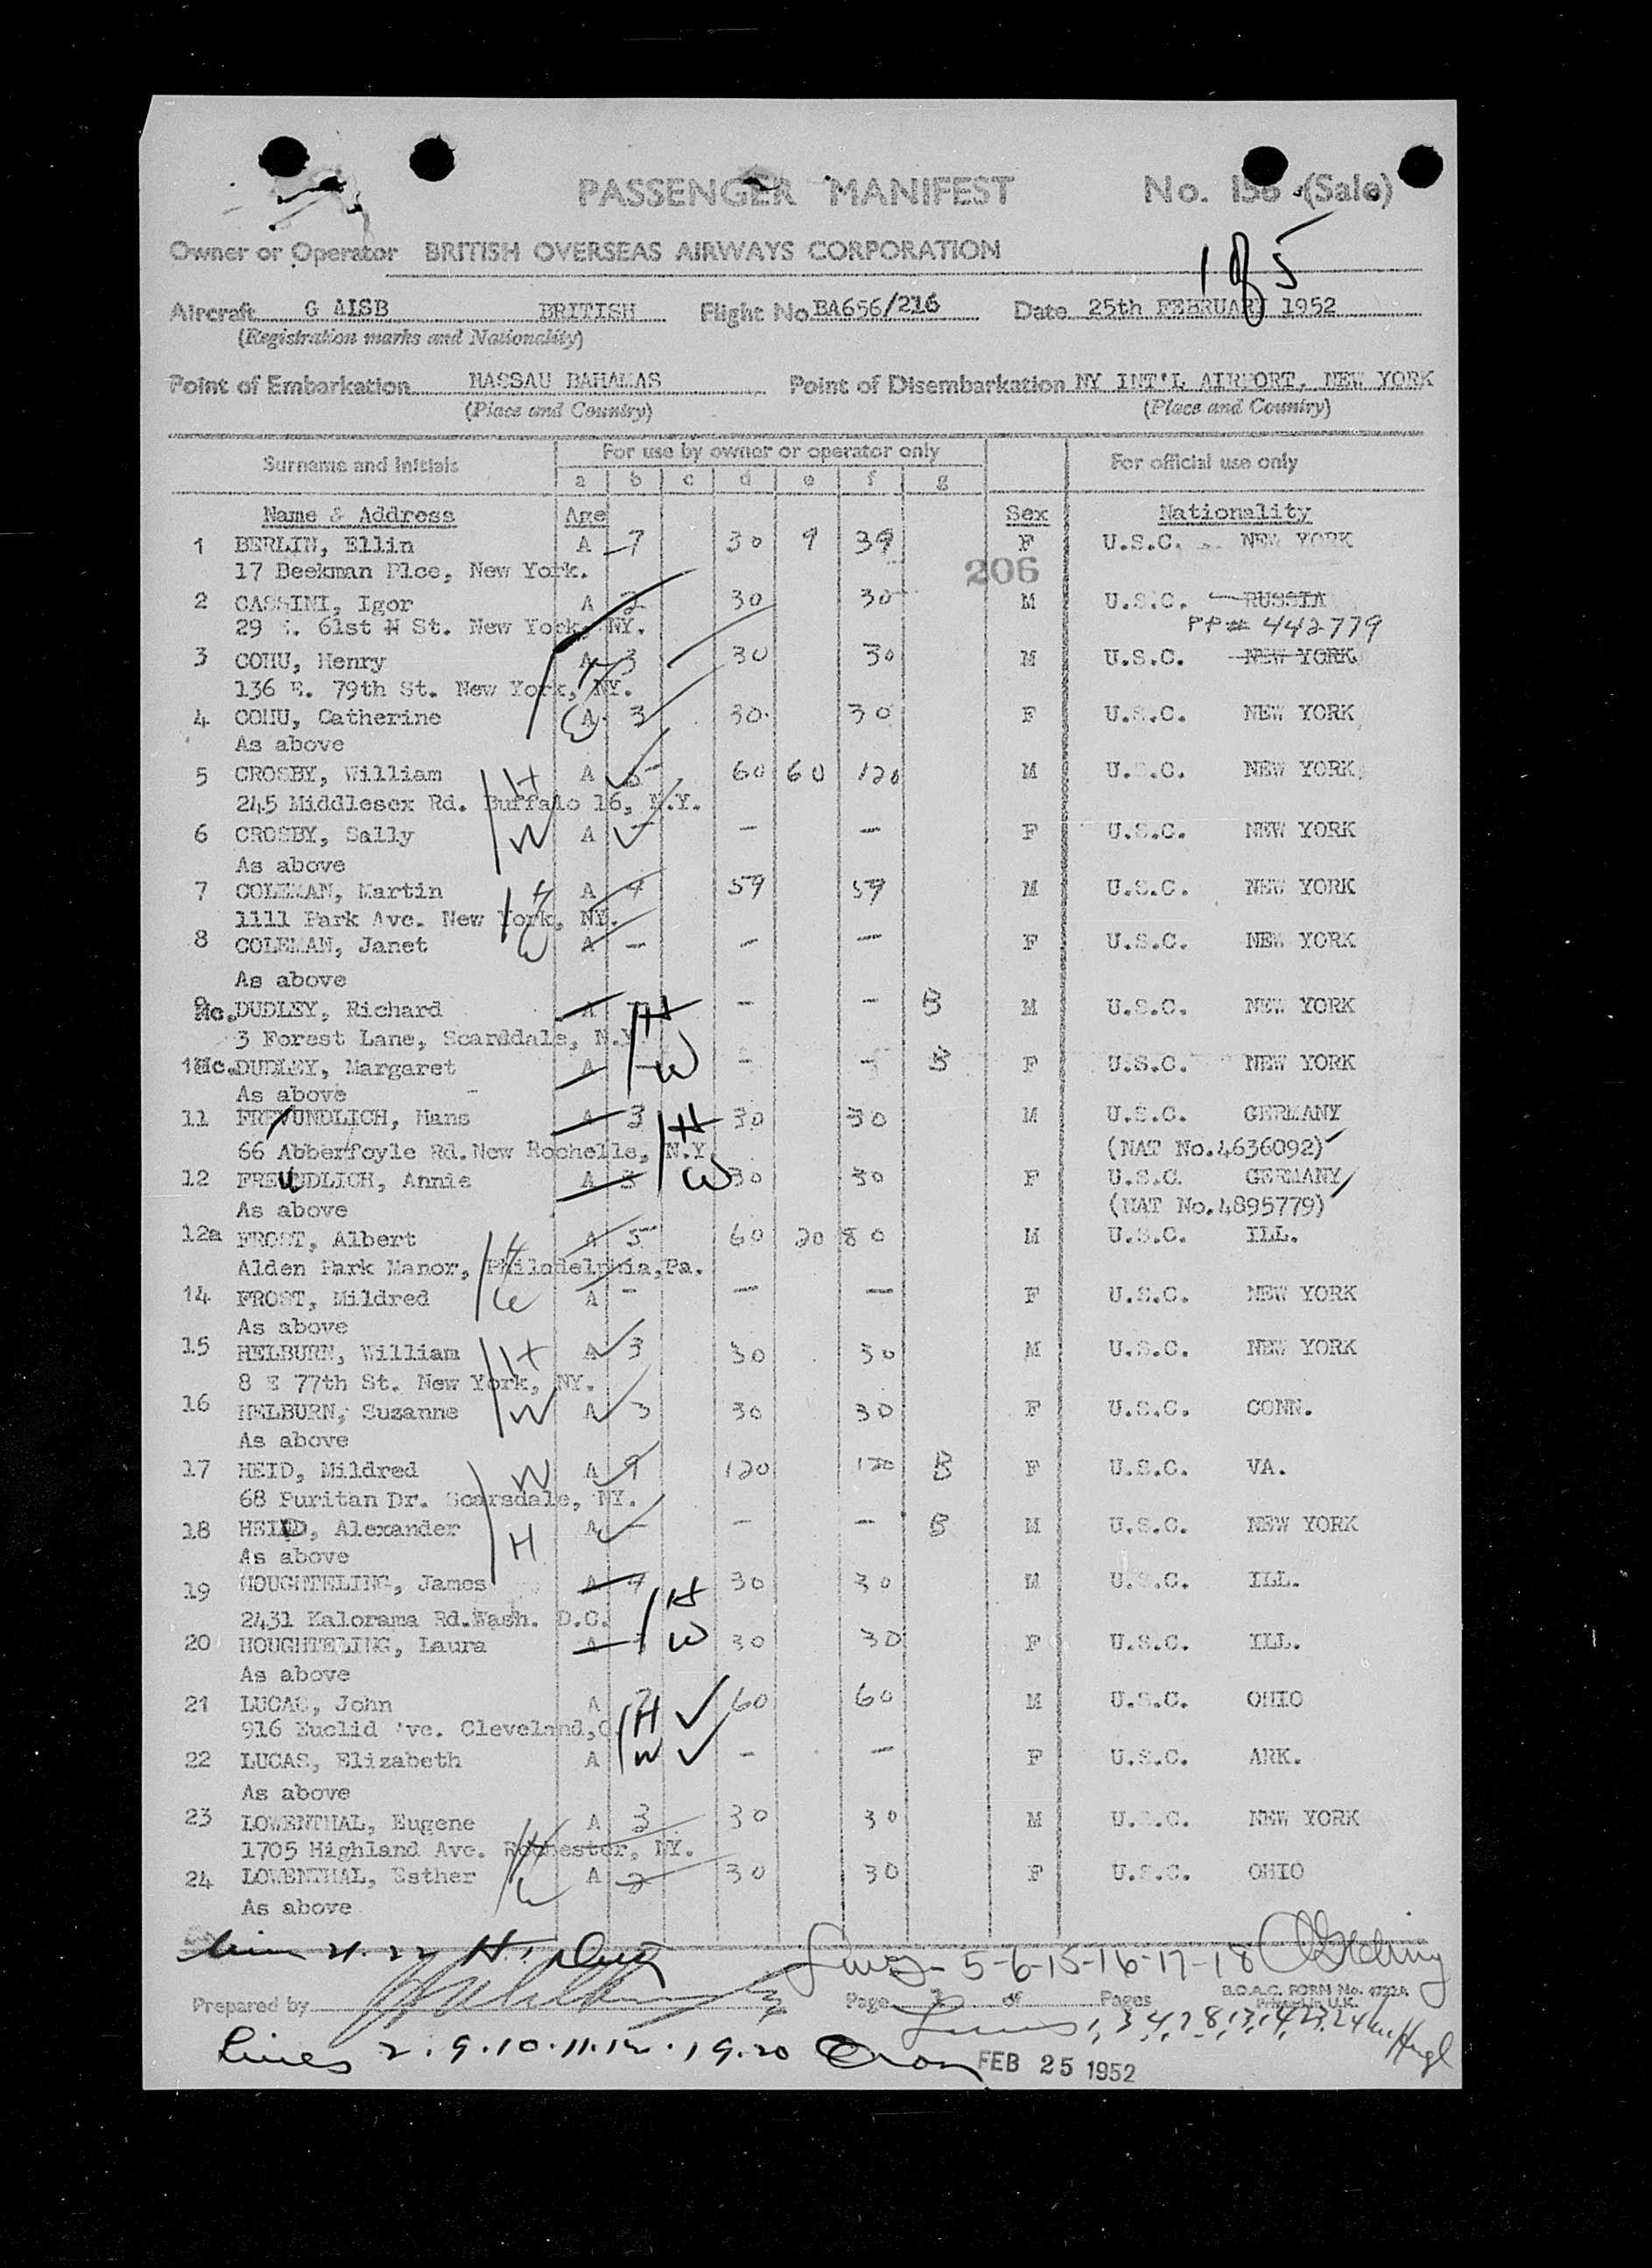 PASSENGER MANIFEST No. 156 (Sale)
1 of 5
Owner or Operator BRITISH OVERSEAS AIRWAYS CORPORATION
Aircraft G AISB BRITISH Flight No BA656/216 Date 25th FEBRUARY 1952
(Registration marks and Nationality)
Point of Embarkation NASSAU BAHAMAS Point of Disembarkation NY INT'L AIRPORT, NEW YORK
(Place and Country) (Place and Country)
Surname and Initials For use by owner or operator only For official use only
a b c d e f g
Name & Address Age Sex Nationality
1 BERLIN, Ellin A 7 30 9 39 F U.S.C. NEW YORK
17 Beekman Plce, New York. 206
2 CASSINI, Igor A 2 30 30 M U.S.C. RUSSIA
29 E. 61st St. New York, NY. PP# 442779
3 COHU, Henry A 3 30 30 M U.S.C. NEW YORK
136 E. 79th St. New York, NY.
4 COHU, Catherine A 3 30 30 F U.S.C. NEW YORK
As above
5 CROSBY, William H A 5 60 60 120 M U.S.C. NEW YORK
245 Middlesex Rd. Buffalo 16, N.Y.
6 CROSBY, Sally W A - - - F U.S.C. NEW YORK
As above
7 COLEMAN, Martin H A 4 59 59 M U.S.C. NEW YORK
1111 Park Ave. New York, NY.
8 COLEMAN, Janet W A - - - F U.S.C. NEW YORK
As above
9 DUDLEY, Richard A H - - B M U.S.C. NEW YORK
3 Forest Lane, Scarddale, N.Y
DUDLEY, Margaret A W - - B F U.S.C. NEW YORK
As above
11 FREUNDLICH, Hans A 3 H 30 30 M U.S.C. GERMANY
66 Abberfoyle Rd. New Rochelle, N.Y. (NAT No.4636092)
12 FREUNDLICH, Annie A 3 W 30 30 F U.S.C. GERMANY
As above (NAT No.4895779)
12a FROST, Albert H A 5 60 20 80 M U.S.C. ILL.
Alden Park Manor, Philadelphia,Pa.
14 FROST, Mildred W A - - - F U.S.C. NEW YORK
As above
15 HELBURN, William H A 3 30 30 M U.S.C. NEW YORK
8 E 77th St. New York, NY.
16 HELBURN, Suzanne W A 3 30 30 F U.S.C. CONN.
As above
17 HEID, Mildred W A 9 120 120 B F U.S.C. VA.
68 Puritan Dr. Scarsdale, NY.
18 HEID, Alexander H A - - - B M U.S.C. NEW YORK
As above
19 HOUGHTELING, James A 7 H 30 30 M U.S.C. ILL.
2431 Kalorama Rd.Wash. D.C.
20 HOUGHTELING, Laura A W 30 30 F U.S.C. ILL.
As above
21 LUCAS, John A H 60 60 M U.S.C. OHIO
916 Euclid Ave. Cleveland,O.
22 LUCAS, Elizabeth A W - - F U.S.C. ARK.
As above
23 LOWENTHAL, Eugene H A 3 30 30 M U.S.C. NEW YORK
1705 Highland Ave. Rochester, NY.
24 LOWENTHAL, Esther W A 2 30 30 F U.S.C. OHIO
As above
21. 22 Lines - 5-6-15-16-17-18
Prepared by Page 1 of Pages B.O.A.C. FORM No. 4722A
Printed in U.K.
Lines 1, 3, 4, 7, 8, 13, 14, 23, 24
Lines 2. 9. 10. 11. 12. 19. 20 FEB 25 1952